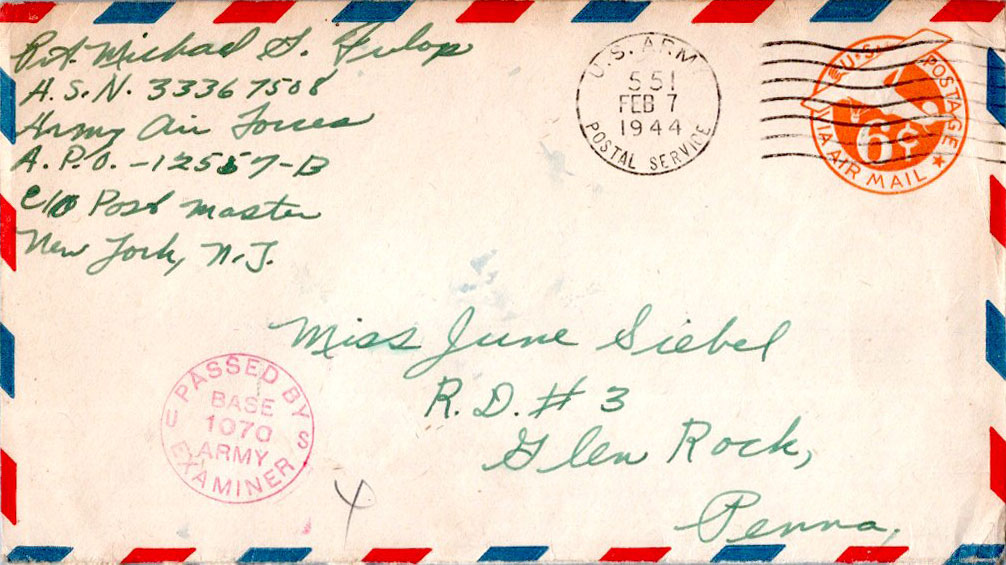 Pvt. Michael S. Fulop
A.S.N. 33367508
Army Air Forces
A.P.O. -12557-B
c/o Post master
New York, N.Y.
U.S. ARMY
551
FEB 7
1944
POSTAL SERVICE
U.S. POSTAGE
6¢
VIA AIR MAIL
Miss June Siebel
R.D. # 3
Glen Rock,
Penna,
PASSED BY
BASE
1070
ARMY
EXAMINER
U S
4